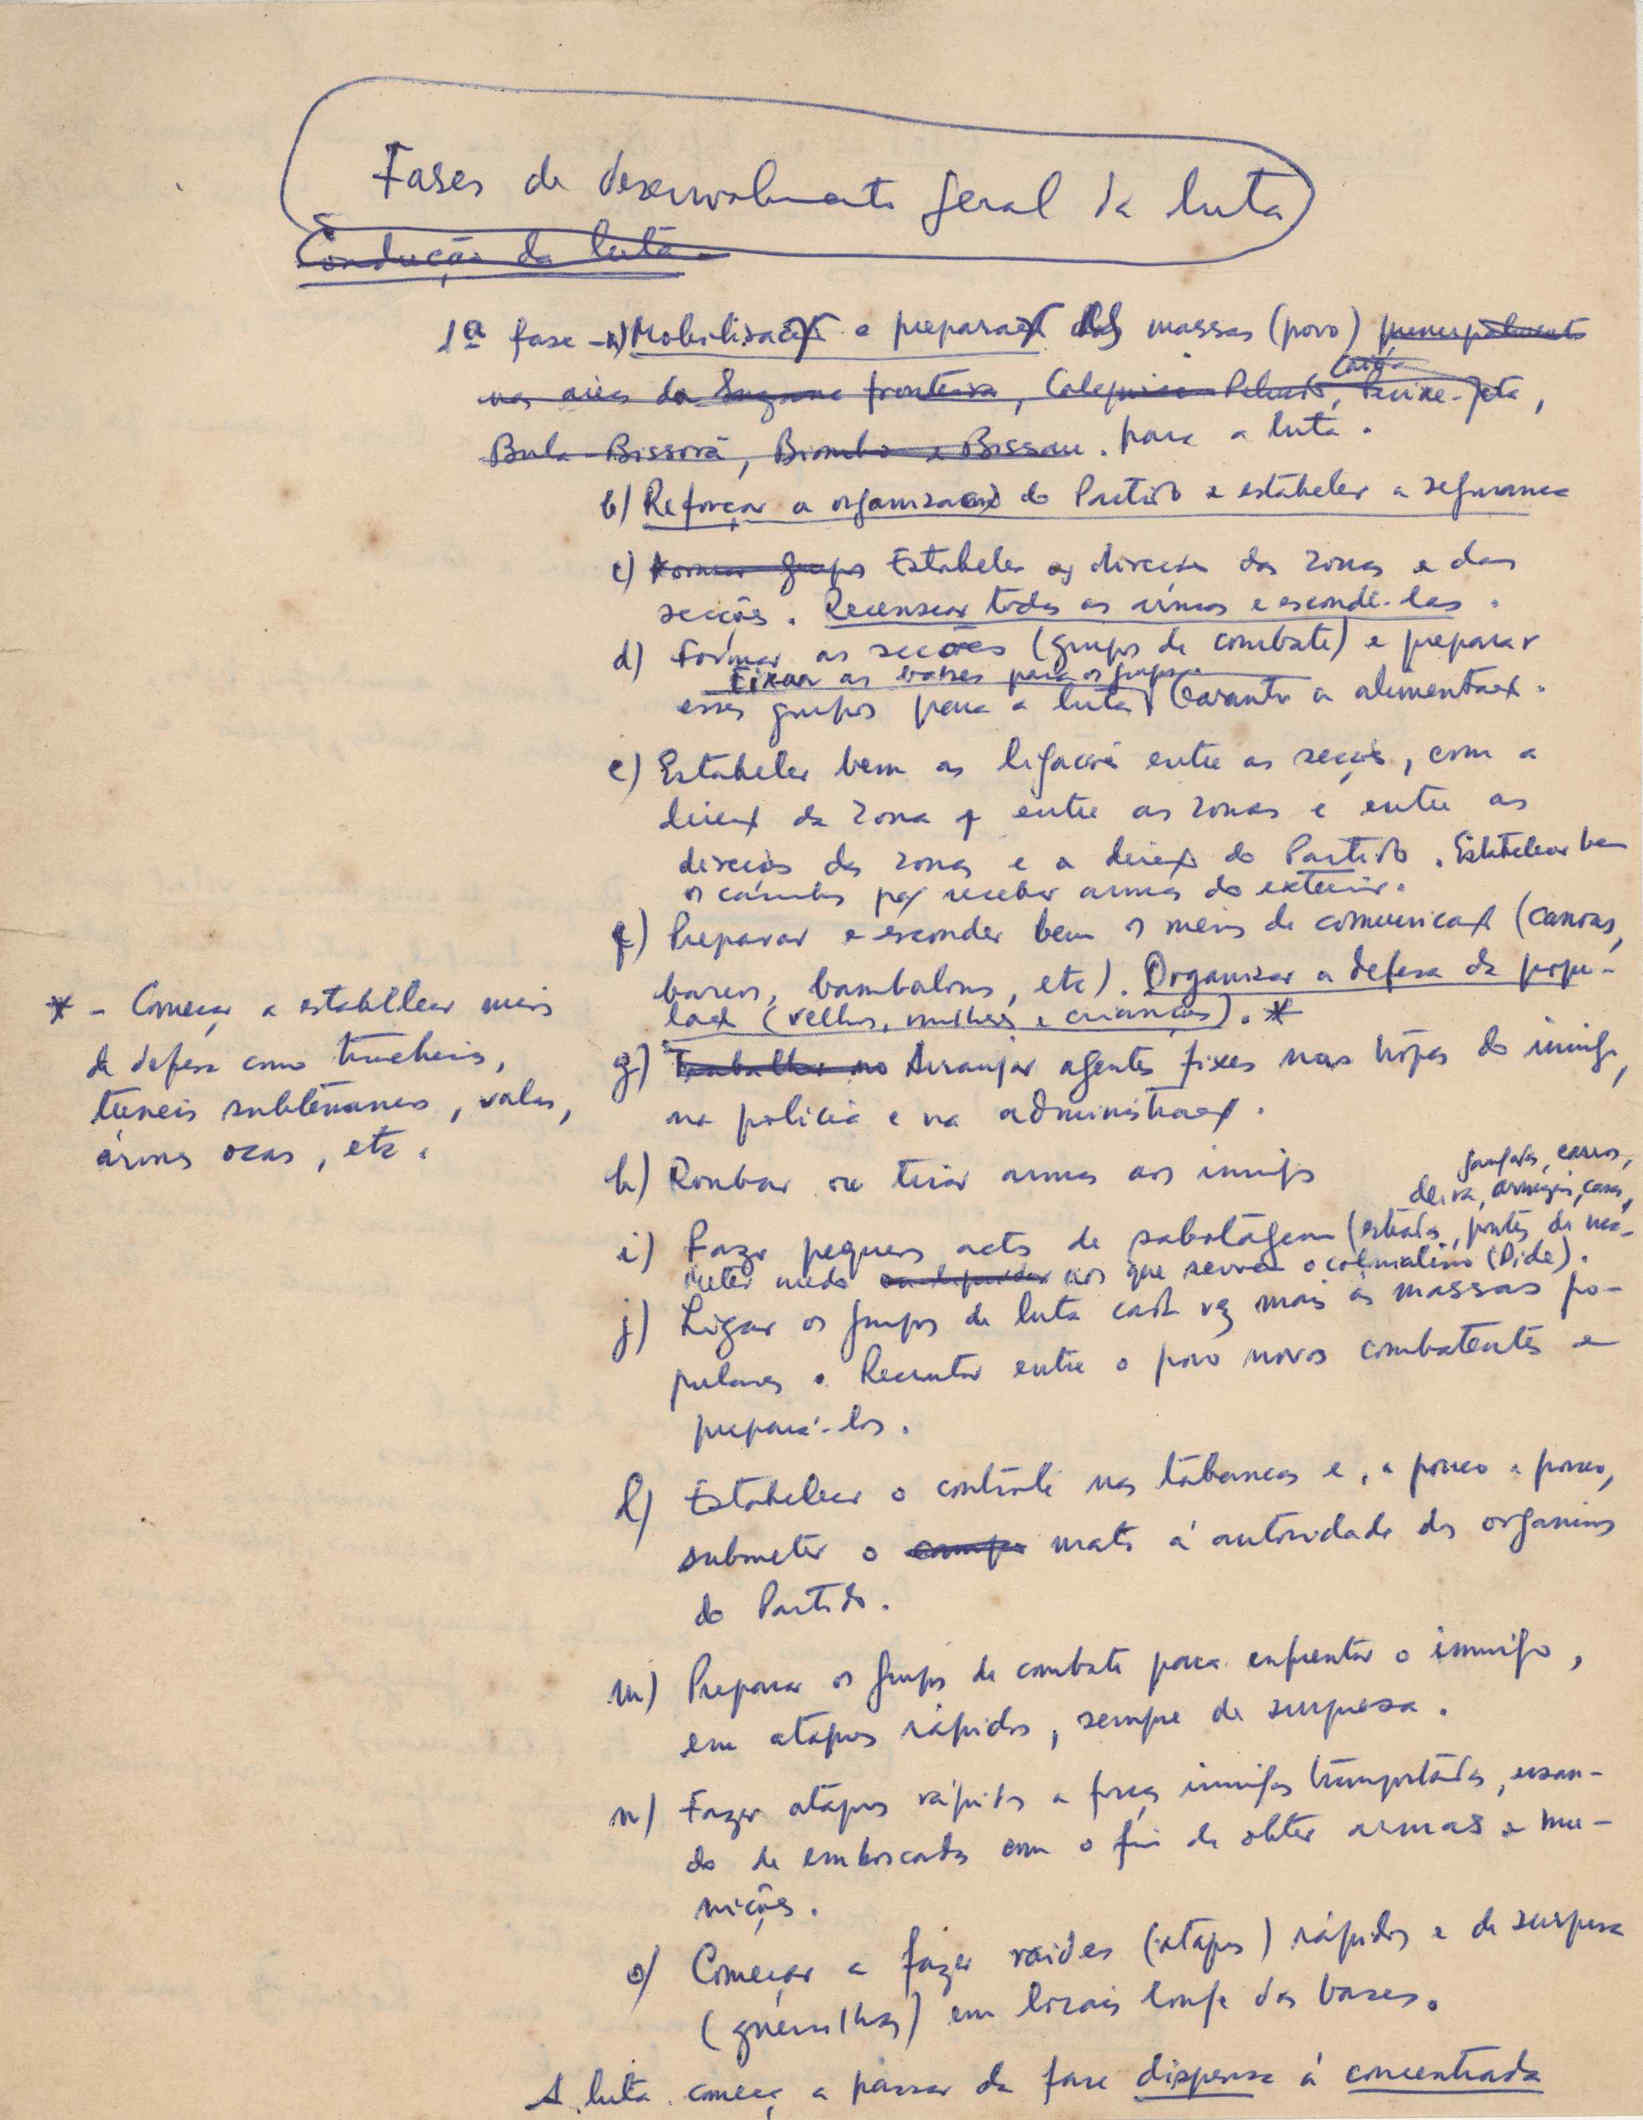 Fases de desenvolvimento geral da luta
Condução da luta
1ª fase - a) Mobilização e preparação das massas (povo) principalmente
na área da fronteira, Catió
Bula-Bissorã, Biombo e Bissau. para a luta.
b) Reforçar a organização do Partido e estabeler a segurança
c) Formar grupos Estabeler as direcções das zonas e das
secções. Recensear todas as armas e escondê-las.
d) Formar as secções (grupos de combate) e preparar
Fixar as bases para os grupos
esses grupos para a luta Garantir a alimentação.
e) Estabeler bem as ligações entre as secções, com a
direcção da zona entre as zonas e entre as
direcções das zonas e a direcção do Partido. Estabelecer bem
os caminhos para receber armas do exterior.
f) Preparar e esconder bem os meios de comunicação (canoas,
barcos, bambalons, etc). Organizar a defesa da popu-
lação (velhos, mulheres e crianças). *
* - Começar a estabelecer meios
de defesa como trincheiras,
túneis subterrâneos, valas,
árvores ocas, etc.
g) Trabalhar no Arranjar agentes fixes nas tropas do inimigo,
na polícia e na administração.
h) Roubar ou tirar armas aos inimigos
jangadas, carros,
armazéns, casas,
i) Fazer pequenos actos de sabotagem (estradas, pontes de ma-
meter medo aos que servem o colonialismo (Pide).
j) Ligar os grupos de luta cada vez mais às massas po-
pulares. Recrutar entre o povo novos combatentes e
prepará-los.
l) Estabelecer o contrôle nas tabancas e, a pouco e pouco,
submeter o campo mato à autoridade dos organismos
do Partido.
m) Preparar os grupos de combate para enfrentar o inimigo,
em ataques rápidos, sempre de surpresa.
n) Fazer ataques rápidos a forças inimigas transportadas, usan-
do de emboscadas com o fim de obter armas e mu-
nições.
o) Começar a fazer raides (ataques) rápidos e de surpresa
(guerrilhas) em locais longe das bases.
A luta começa a passar da fase dispersa à concentrada